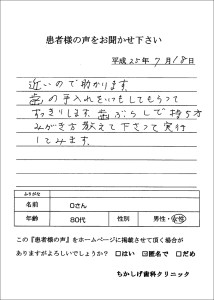 患者様の声をお聞かせ下さい
平成25年7月18日
近いので助かります。
歯の手入れをいつもしてもらって
すっきりします。歯ぶらしで持ち方
みがき方教えて下さって実行
してみます。
ふりがな
名前 Oさん
年齢 80代 性別 男性・女性
この『患者様の声』をホームページに掲載させて頂く場合が
ありますがよろしいでしょうか? □はい ☑匿名で □だめ
ちかしげ歯科クリニック